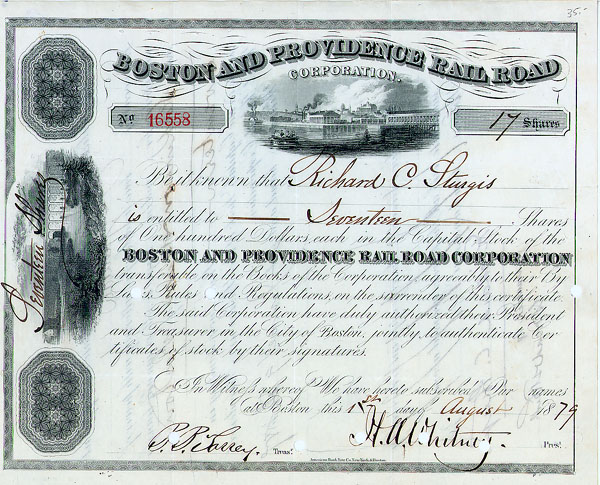 35.-
BOSTON AND PROVIDENCE RAIL ROAD
CORPORATION.
No 16558
17 Shares
Be it known that Richard C. Sturgis
is entitled to Seventeen Shares
of One hundred Dollars, each in the Capital Stock of the
BOSTON AND PROVIDENCE RAIL ROAD CORPORATION
transferable on the Books of the Corporation, agreeably to their By
Laws, Rules and Regulations, on the surrender of this certificate.
The said Corporation have duly authorized their President
and Treasurer in the City of Boston, jointly, to authenticate Cer
tificates of stock by their signatures.
In Witness whereof We have hereto subscribed Our names
at Boston this 1st day August 1879
Treasr.
H. A. Whitney.
Prest.
American Bank Note Co. New York & Boston.
Seventeen Shares